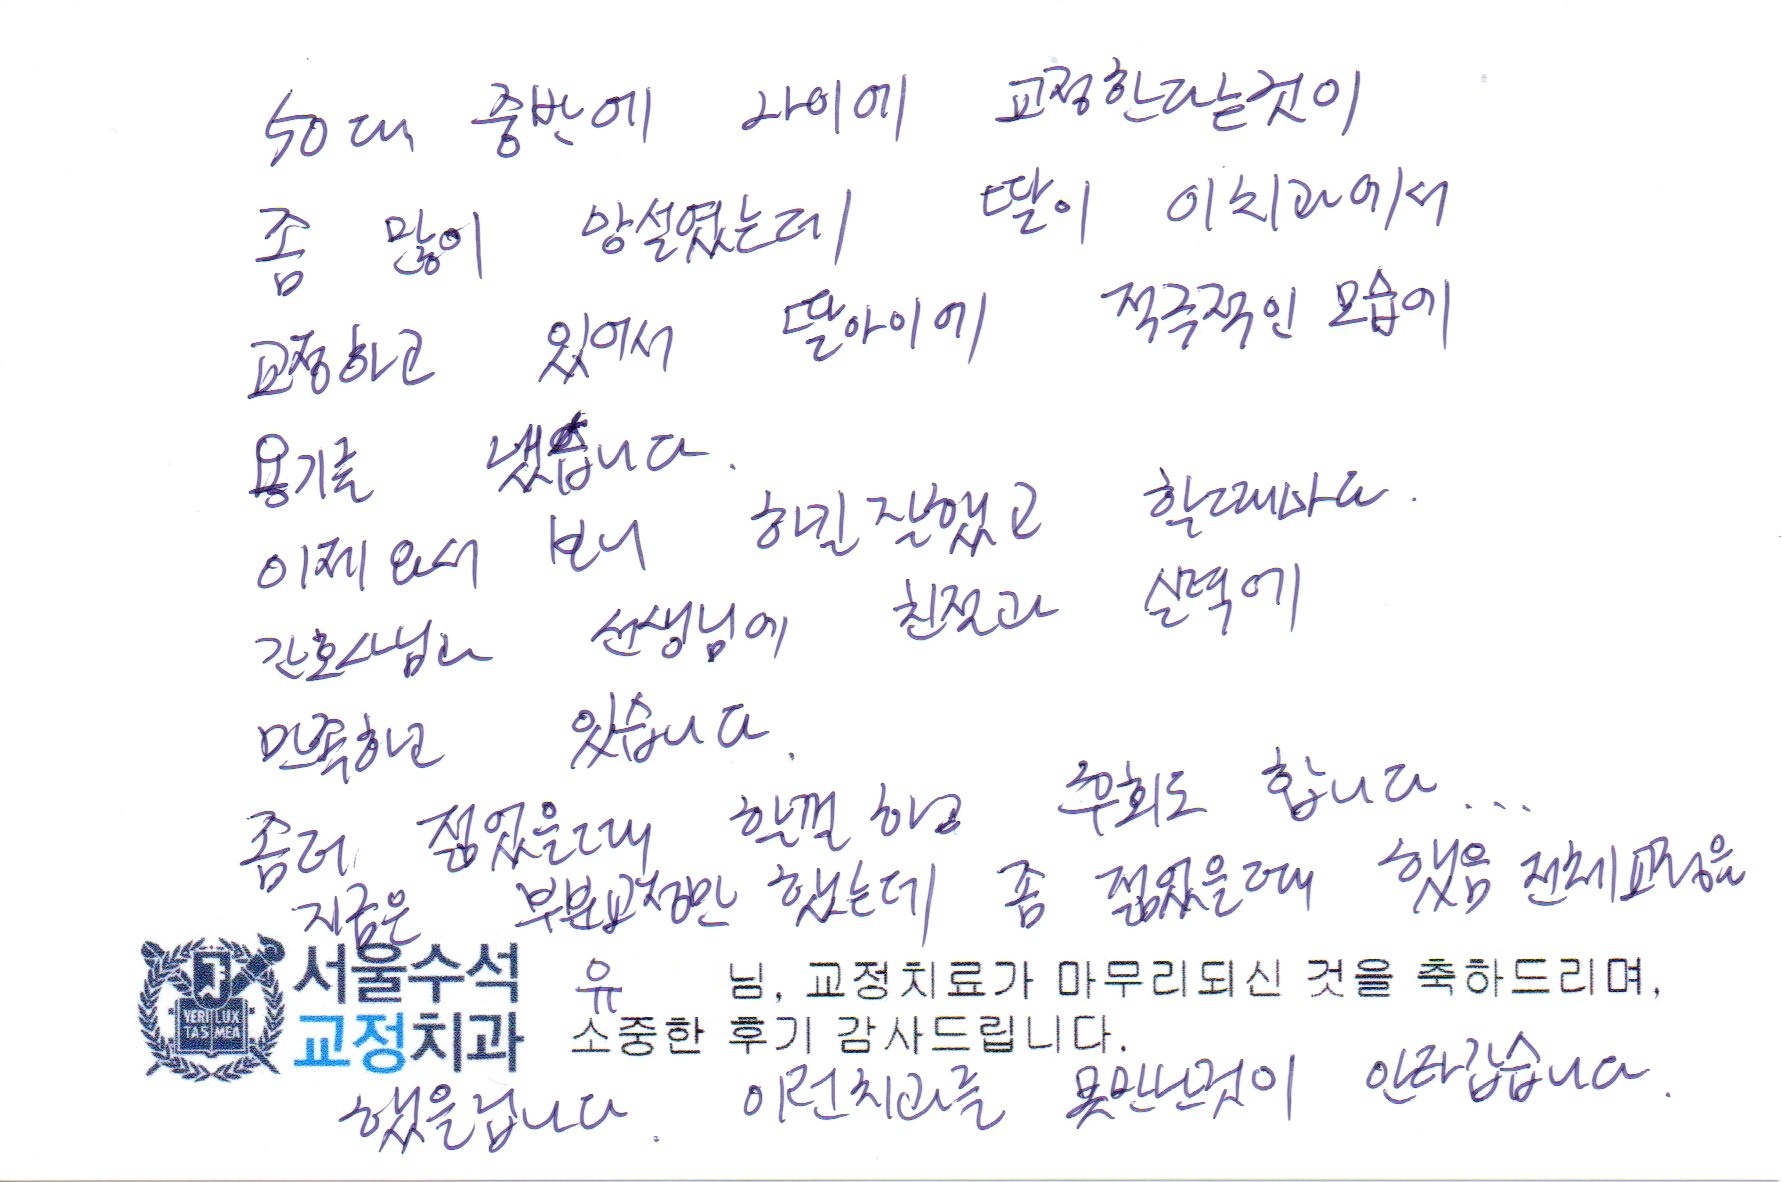 50대 중반에 나이에 교정한다는것이
좀 많이 망설였는데 딸이 이치과에서
교정하고 있어서 딸아이에 적극적인 모습에
용기를 냈습니다.
이제와서 보니 하길 잘했고 할때마다.
간호사님과 선생님에 친절과 실력에
만족하고 있습니다.
좀더 젊었을때 할껄 하고 후회도 합니다...
지금은 부분교정만 했는데 좀 젊었을때 했음 전체교정을
서울수석 유 님, 교정치료가 마무리되신 것을 축하드리며,
교정치과 소중한 후기 감사드립니다.
VERI LUX
TAS MEA
했을겁니다. 이런치과를 못만난것이 안타깝습니다.